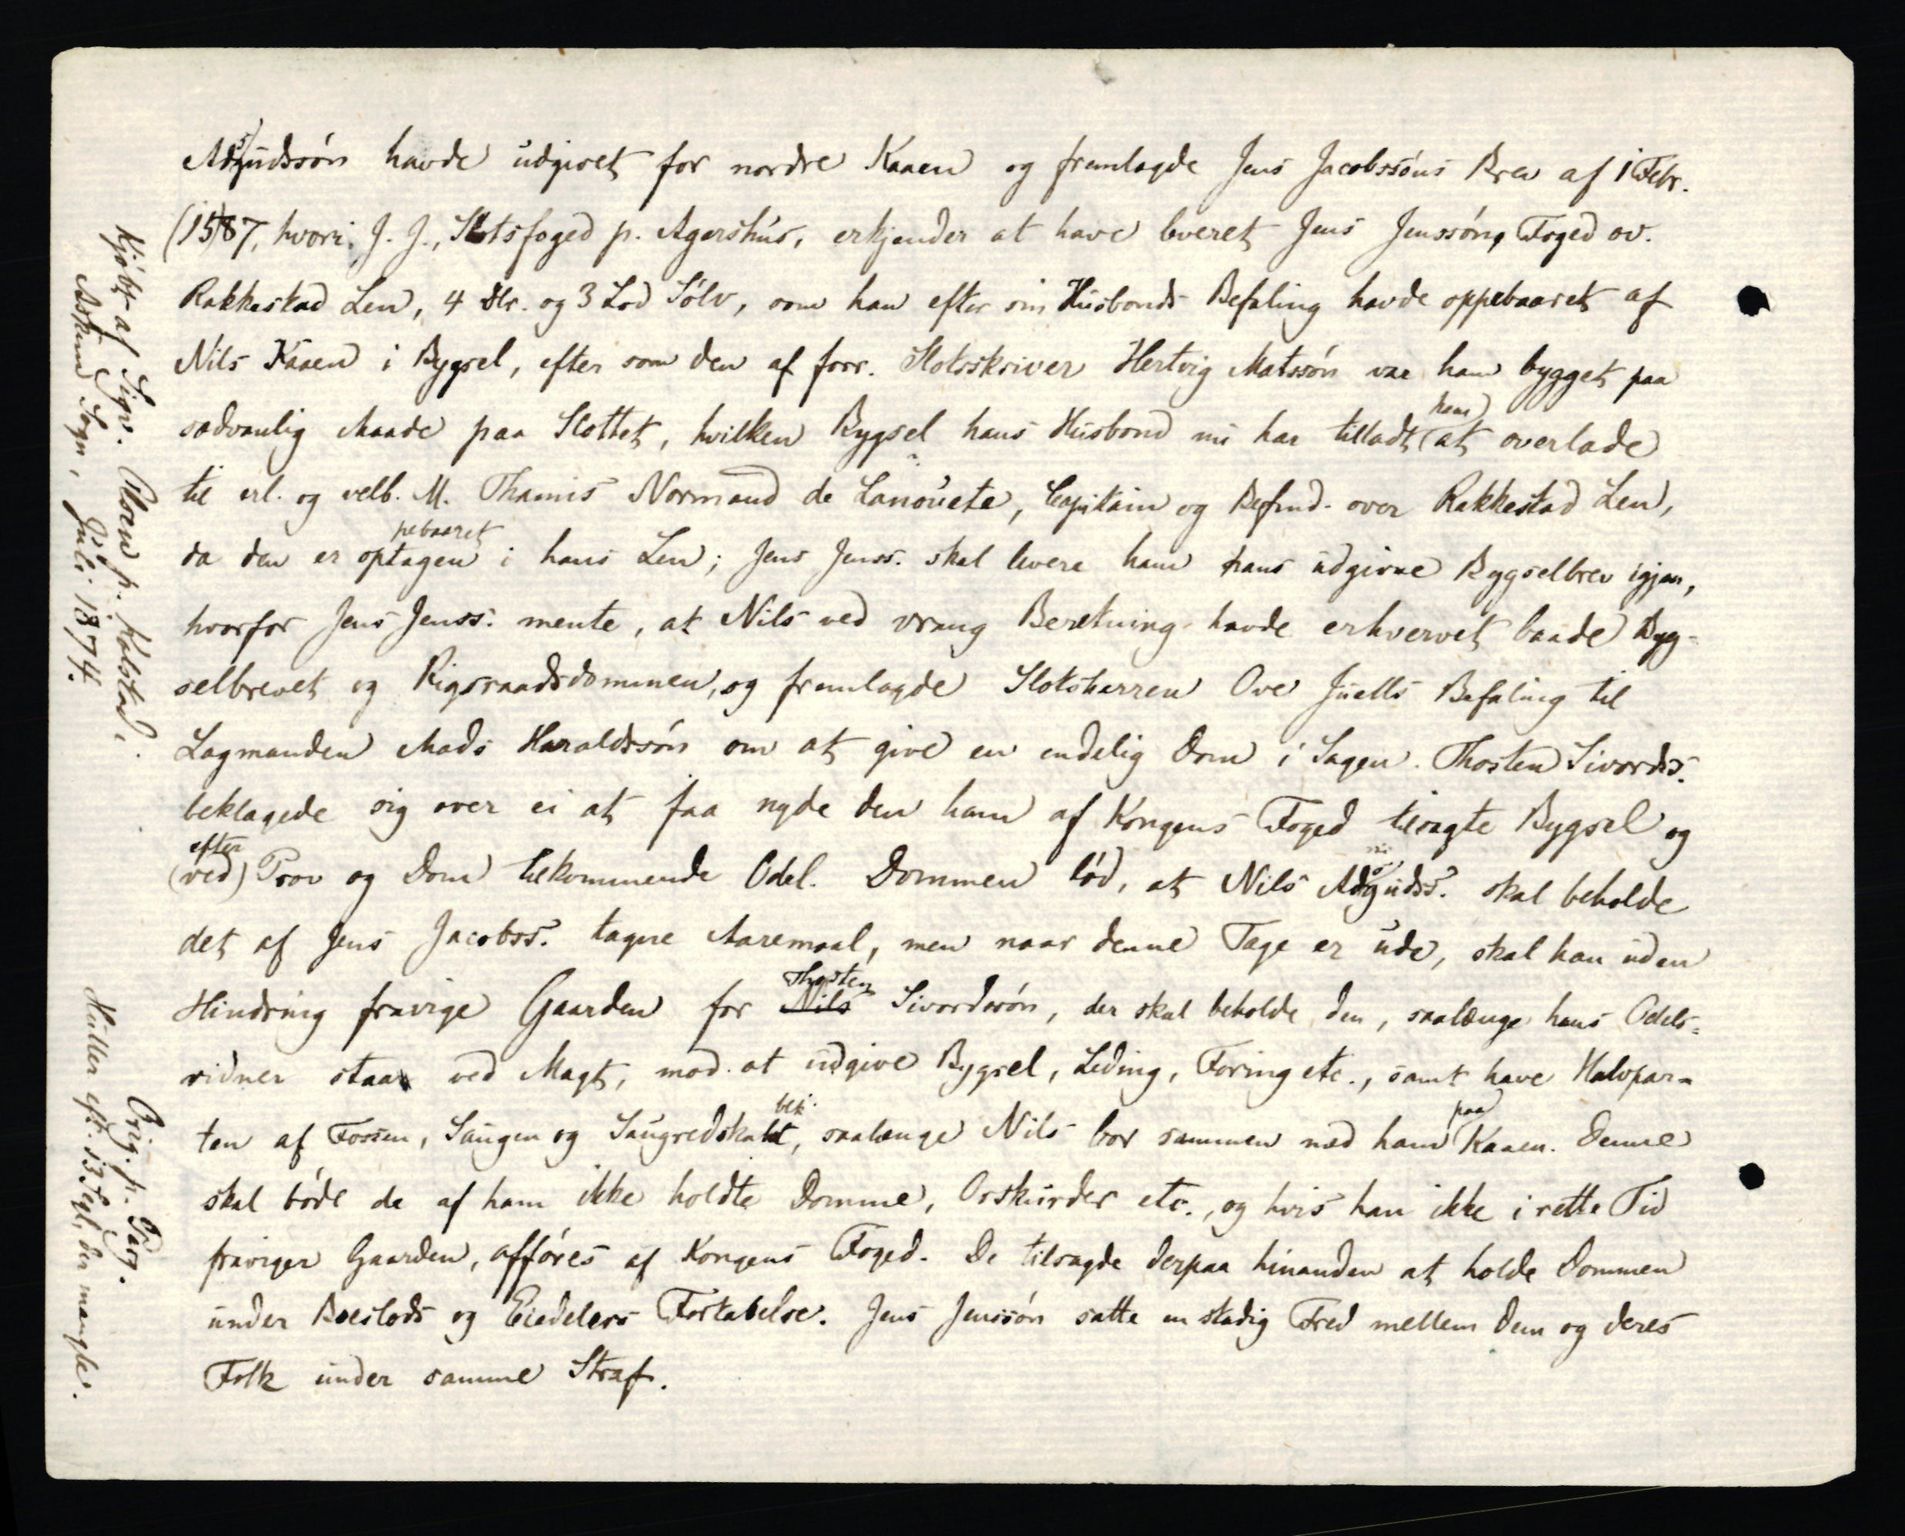 Asgudssøn havde udgivet for nordre Kaaen og fremlagde Jens Jacobssøns Brev af 1 Febr.
(1587, hvori J. J., Slotsfoged p. Agershus, erkjender at have leveret Jens Jenssøn, Foged ov.
Rakkestad Len, 4 Dlr. og 3 Lod Sølv, som han efter sin Husbonds Befaling havde oppebaaret af
Nils Kaaen i Bygsel, efter som den af forr. Slotsskriver Hertvig Matssøn var ham bygget paa
sædvanlig Maade paa Slottet, hvilken Bygsel hans Husbond nu har tilladt (ham) at overlade
til erl. og velb. M. Thamis Normand de Lanouete, Capitain og Befmd. over Rakkestad Len,
da den er optagen pebaaret i hans Len; Jens Jenss. skal levere ham hans udgivne Bygselbrev igjen,
hvorfor Jens Jenss. mente, at Nils ved vrang Beretning havde erhvervet baade Byg-
selbrevet og Rigsraadsdommen, og fremlagde Slotsherren Ove Juells Befaling til
Lagmanden Mads Haraldssøn om at give en endelig Dom i Sagen. Thosten Sivordss.
beklagede sig over ei at faa nyde den ham af Kongens Foged tilsagte Bygsel og
efter
(ved) Prov og Dom tilkommende Odel. Dommen lød, at Nils Asgudss. skal beholde
det af Jens Jacobss. tagne Aaremaal, men naar denne Tage er ude, skal han uden
Hindring fravige Gaarden for Nils Thosten Sivordssøn, der skal beholde den, saalænge hans Odels-
vidner staar ved Magt, mod at udgive Bygsel, Leding, Foring etc., samt have Halvpar-
ten af Fossen, Saugen og Saugredskabet, saalænge Nils bor sammen med ham paa Kaaen. Denne
skal bøde de af ham ikke holdte Domme, Orskurder etc., og hvis han ikke i rette Tid
fraviger Gaarden, afføres af Kongens Foged. De tilsagde derpaa hinanden at holde Dommen
under Boeslods og Eiedelers Fortabelse. Jens Jenssøn satte en stadig Fred mellem dem og deres
Folk under samme Straf.
Kjøbt af Sigv. Floen p. Kolstad,
Askim Sogn, Juli 1874.
Orig. p. Perg.
Huller eft. 13 Segl, der mangle.